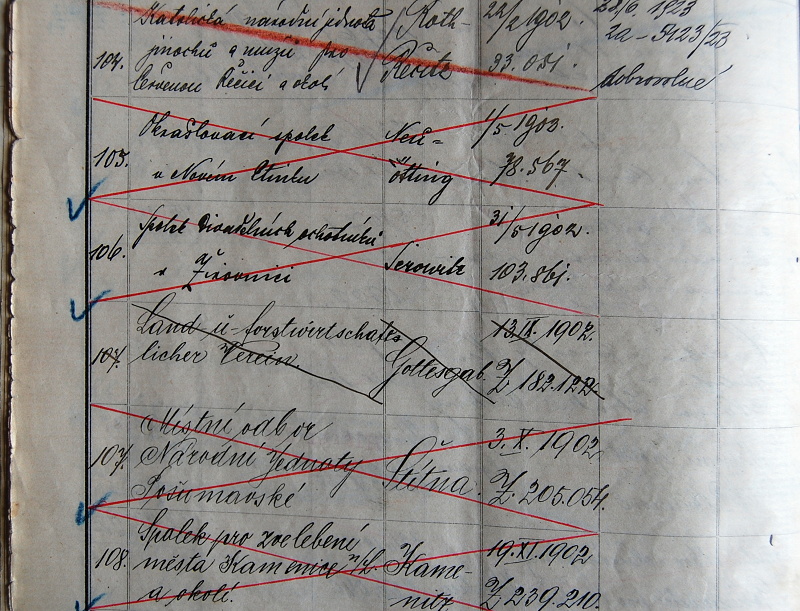 104. Katolická národní jednota Roth- 22/2 1902. 28/6. 1923
jinochů a mužů pro Řečitz 93.051. 2a-5123/23
Červenou Řečici a okolí dobrovolně
105. Okrašlovací spolek Neu= 1/5 1902.
v Novém Etinku Ötting 78.567.
106. Spolek Divadelních ochotníků 31/5 1902.
v Žirovnici Serowitz 103.861.
107. Land u-forstwirtschaft= 13.IX. 1902.
licher Verein. Gottesgab. Z 182.122
107. Místní odbor 3.X. 1902
Národní Jednoty Štítna.
Pošumavské Z. 205.054.
108. Spolek pro zvelebení 19.XI.1902
města Kamenice n/L. Kame-
a okolí. nitz Z 239.210.